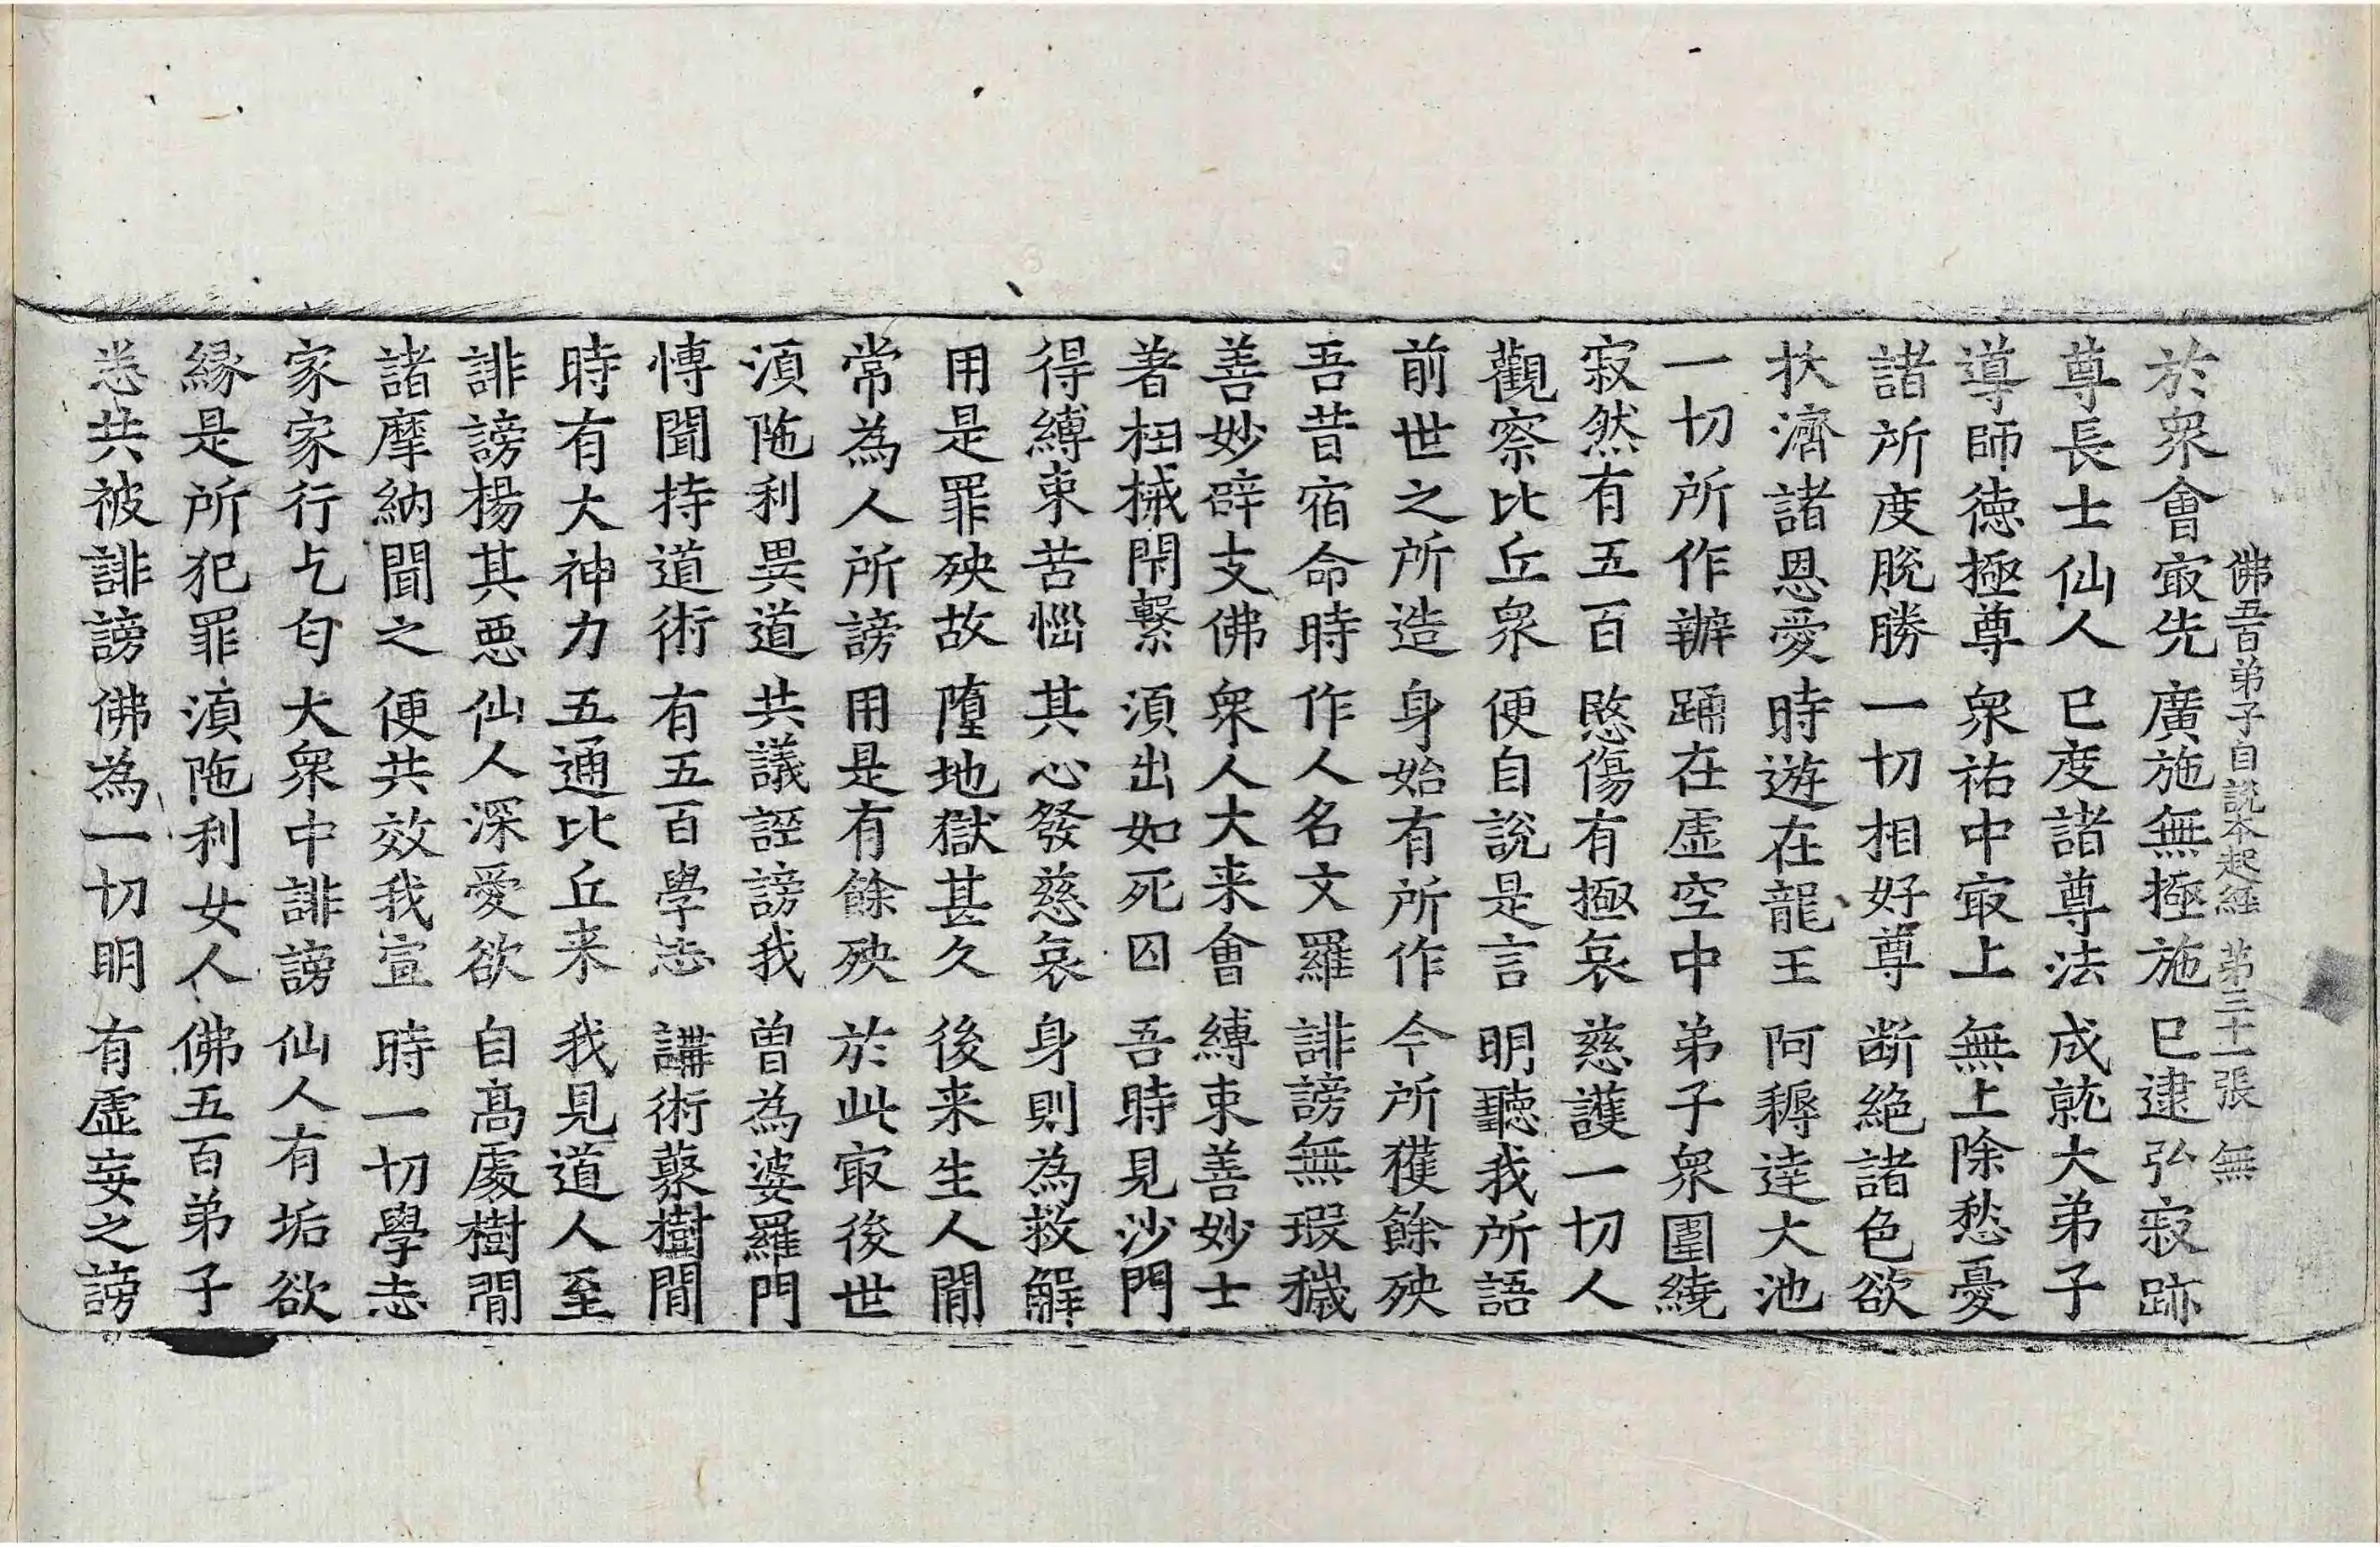 佛五百弟子自說本起經　第三十一張　無
於衆會㝡先　廣施無極施　已逮弘寂跡
尊長士仙人　已度諸尊法　成就大弟子
導師德極尊　衆祐中㝡上　無上除愁憂
諸所度脫勝　一切相好尊　断絕諸色欲
扶濟諸恩愛　時遊在龍王　阿耨達大池
一切所作辦　踊在虛空中　弟子衆圍繞
寂然有五百　愍傷有極哀　慈護一切人
觀察比丘衆　便自說是言　明聽我所語
前世之所造　身始有所作　今所獲餘殃
吾昔宿命時　作人名文羅　誹謗無瑕穢
善妙辟支佛　衆人大来會　縛束善妙士
著杻械閇繫　須出如死囚　吾時見沙門
得縛束苦惱　其心發慈哀　身則為救解
用是罪殃故　墮地獄甚久　後来生人閒
常為人所謗　用是有餘殃　於此㝡後世
須陁利異道　共議誣謗我　曾為婆羅門
博聞持道術　有五百學志　講術藂樹閒
時有大神力　五通比丘来　我見道人至
誹謗揚其惡　仙人深愛欲　自高處樹閒
諸摩納聞之　便共效我宣　時一切學志
家家行乞匂　大衆中誹謗　仙人有垢欲
緣是所犯罪　須陁利女人　佛五百弟子
悉共被誹謗　佛為一切明　有虛妄之謗